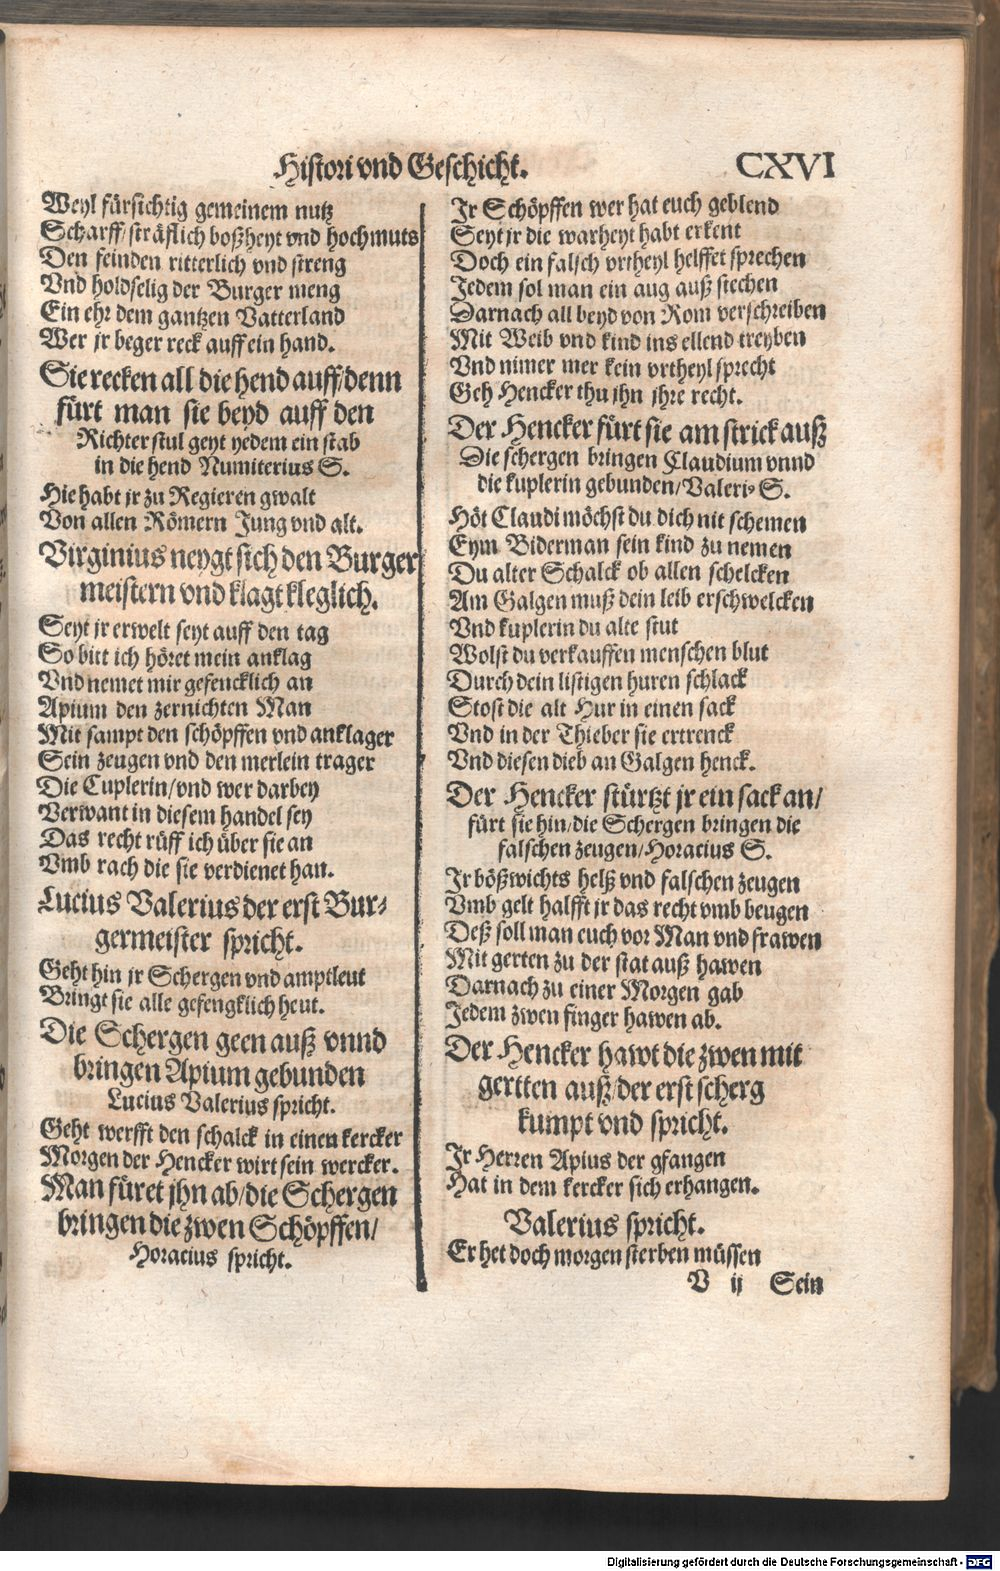 Histori vnd Geschicht. CXVI
Weyl fürsichtig gemeinem nutz
Scharff/sträflich boßheyt vnd hochmuts
Den feinden ritterlich vnd streng
Vnd holdselig der Burger meng
Ein ehr dem gantzen Vatterland
Wer jr beger reck auff ein hand.
Sie recken all die hend auff/denn
fürt man sie beyd auff den
Richterstul geyt yedem ein stab
in die hend Numiterius S.
Hie habt jr zu Regieren gwalt
Von allen Römern Jung vnd alt.
Virginius neygt sich den Burger
meistern vnd klagt kleglich.
Seyt jr erwelt seyt auff den tag
So bitt ich höret mein anklag
Vnd nemet mir gefencklich an
Apium den zernichten Man
Mit sampt den schöpffen vnd anklager
Sein zeugen vnd den merlein trager
Die Cuplerin/vnd wer darbey
Verwant in diesem handel sey
Das recht rüff ich über sie an
Vmb rach die sie verdienet han.
Lucius Valerius der erst Bur-
germeister spricht.
Geht hin jr Schergen vnd amptleut
Bringt sie alle gefengklich heut.
Die Schergen geen auß vnnd
bringen Apium gebunden
Lucius Valerius spricht.
Geht werfft den schalck in einen kercker
Morgen der Hencker wirt sein wercker.
Man füret jhn ab/die Schergen
bringen die zwen Schöpffen/
Horacius spricht.
Jr Schöpffen wer hat euch geblend
Seyt jr die warheyt habt erkent
Doch ein falsch vrtheyl helffet sprechen
Jedem sol man ein aug auß stechen
Darnach all beyd von Rom verschreiben
Mit Weib vnd kind ins ellend treyben
Vnd nimer mer kein vrtheyl sprecht
Geh Hencker thu jhn jhre recht.
Der Hencker fürt sie am strick auß
Die schergen bringen Claudium vnnd
die kuplerin gebunden/Valeri⁹ S.
Höt Claudi möchst du dich nit schemen
Eym Biderman sein kind zu nemen
Du alter Schalck ob allen schelcken
Am Galgen muß dein leib erschwelcken
Vnd kuplerin du alte stut
Wolst du verkauffen menschen blut
Durch dein listigen huren schlack
Stost die alt Hur in einen sack
Vnd in der Thieber sie ertrenck
Vnd diesen dieb an Galgen henck.
Der Hencker stürtzt jr ein sack an/
fürt sie hin/die Schergen bringen die
falschen zeugen/Horacius S.
Jr bößwichts helß vnd falschen zeugen
Vmb gelt halfft jr das recht vmb beugen
Deß soll man euch vor Man vnd frawen
Mit gerten zu der stat auß hawen
Darnach zu einer Morgen gab
Jedem zwen finger hawen ab.
Der Hencker hawt die zwen mit
gertten auß/der erst scherg
kumpt vnd spricht.
Jr Herren Apius der gfangen
Hat in dem kercker sich erhangen.
Valerius spricht.
Er het doch morgen sterben müssen
V ij Sein
Digitalisierung gefördert durch die Deutsche Forschungsgemeinschaft - DFG